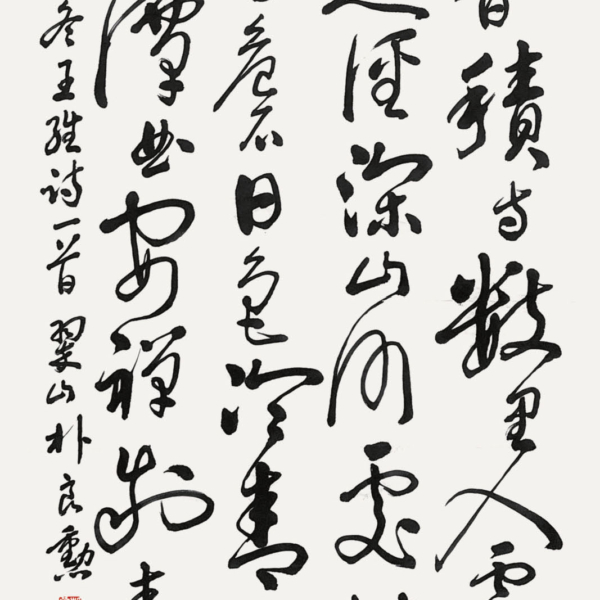 香積寺數里入雲
徑深山何處
危石日色冷青
潭曲安禪制
冬王維詩一首 翠山朴良勳